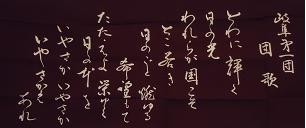 岐阜第一団
団歌
とわに輝く
日の光
われらが国こそ
とこ若き
日のごと燃ゆる
希望もて
たたえよ栄ゆく
日の本を
いやさか いやさか
いやさかで
あれ